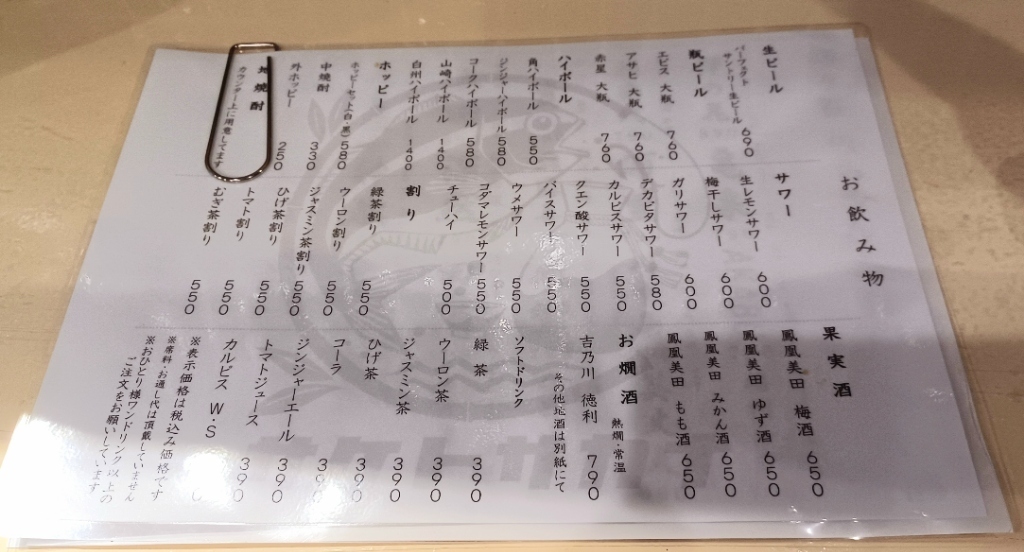 お飲み物
生ビール
パーフェクト
サントリー生ビール 690
瓶ビール
エビス 大瓶 760
アサヒ 大瓶 760
赤星 大瓶 760
ハイボール
角ハイボール 550
ジンジャーハイボール 580
コークハイボール 580
山崎ハイボール 1400
白州ハイボール 1400
ホッピー
ホッピーセット(白・黒) 580
中焼酎 330
外ホッピー 250
焼酎
カウンター上に用意してます
サワー
生レモンサワー 600
梅干しサワー 600
ガリサワー 600
デカビタサワー 580
カルピスサワー 550
クエン酸サワー 550
バイスサワー 550
ウメサワー 550
コダマレモンサワー 550
チューハイ 500
割り
緑茶割り 550
ウーロン割り 550
ジャスミン茶割り 550
ひげ茶割り 550
トマト割り 550
むぎ茶割り 550
果実酒
鳳凰美田 梅酒 650
鳳凰美田 ゆず酒 650
鳳凰美田 みかん酒 650
鳳凰美田 もも酒 650
お燗酒 熱燗・常温
吉乃川 徳利 790
その他地酒は別紙にて
ソフトドリンク
緑茶 390
ウーロン茶 390
ジャスミン茶 390
ひげ茶 390
コーラ 390
ジンジャーエール 390
トマトジュース 390
カルピス W・S 390
※表示価格は税込み価格です
※席料・お通し代は頂戴していません
※おひとり様ワンドリンク以上の
ご注文をお願いしています
サケトサカナ